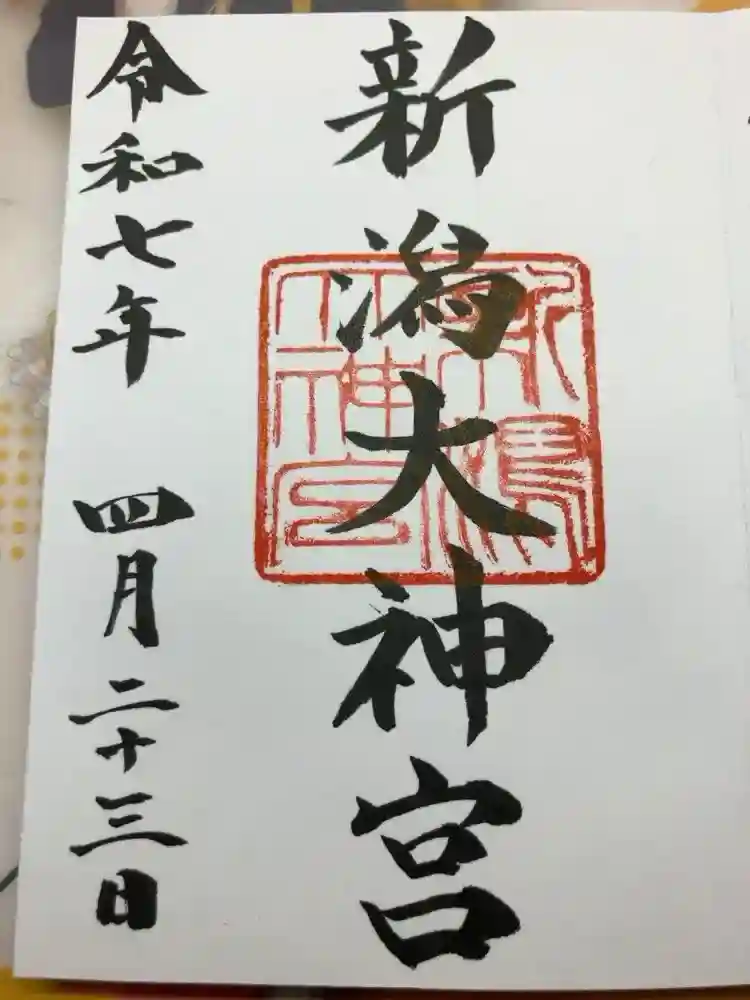 新潟大神宮
令和七年 四月二十三日